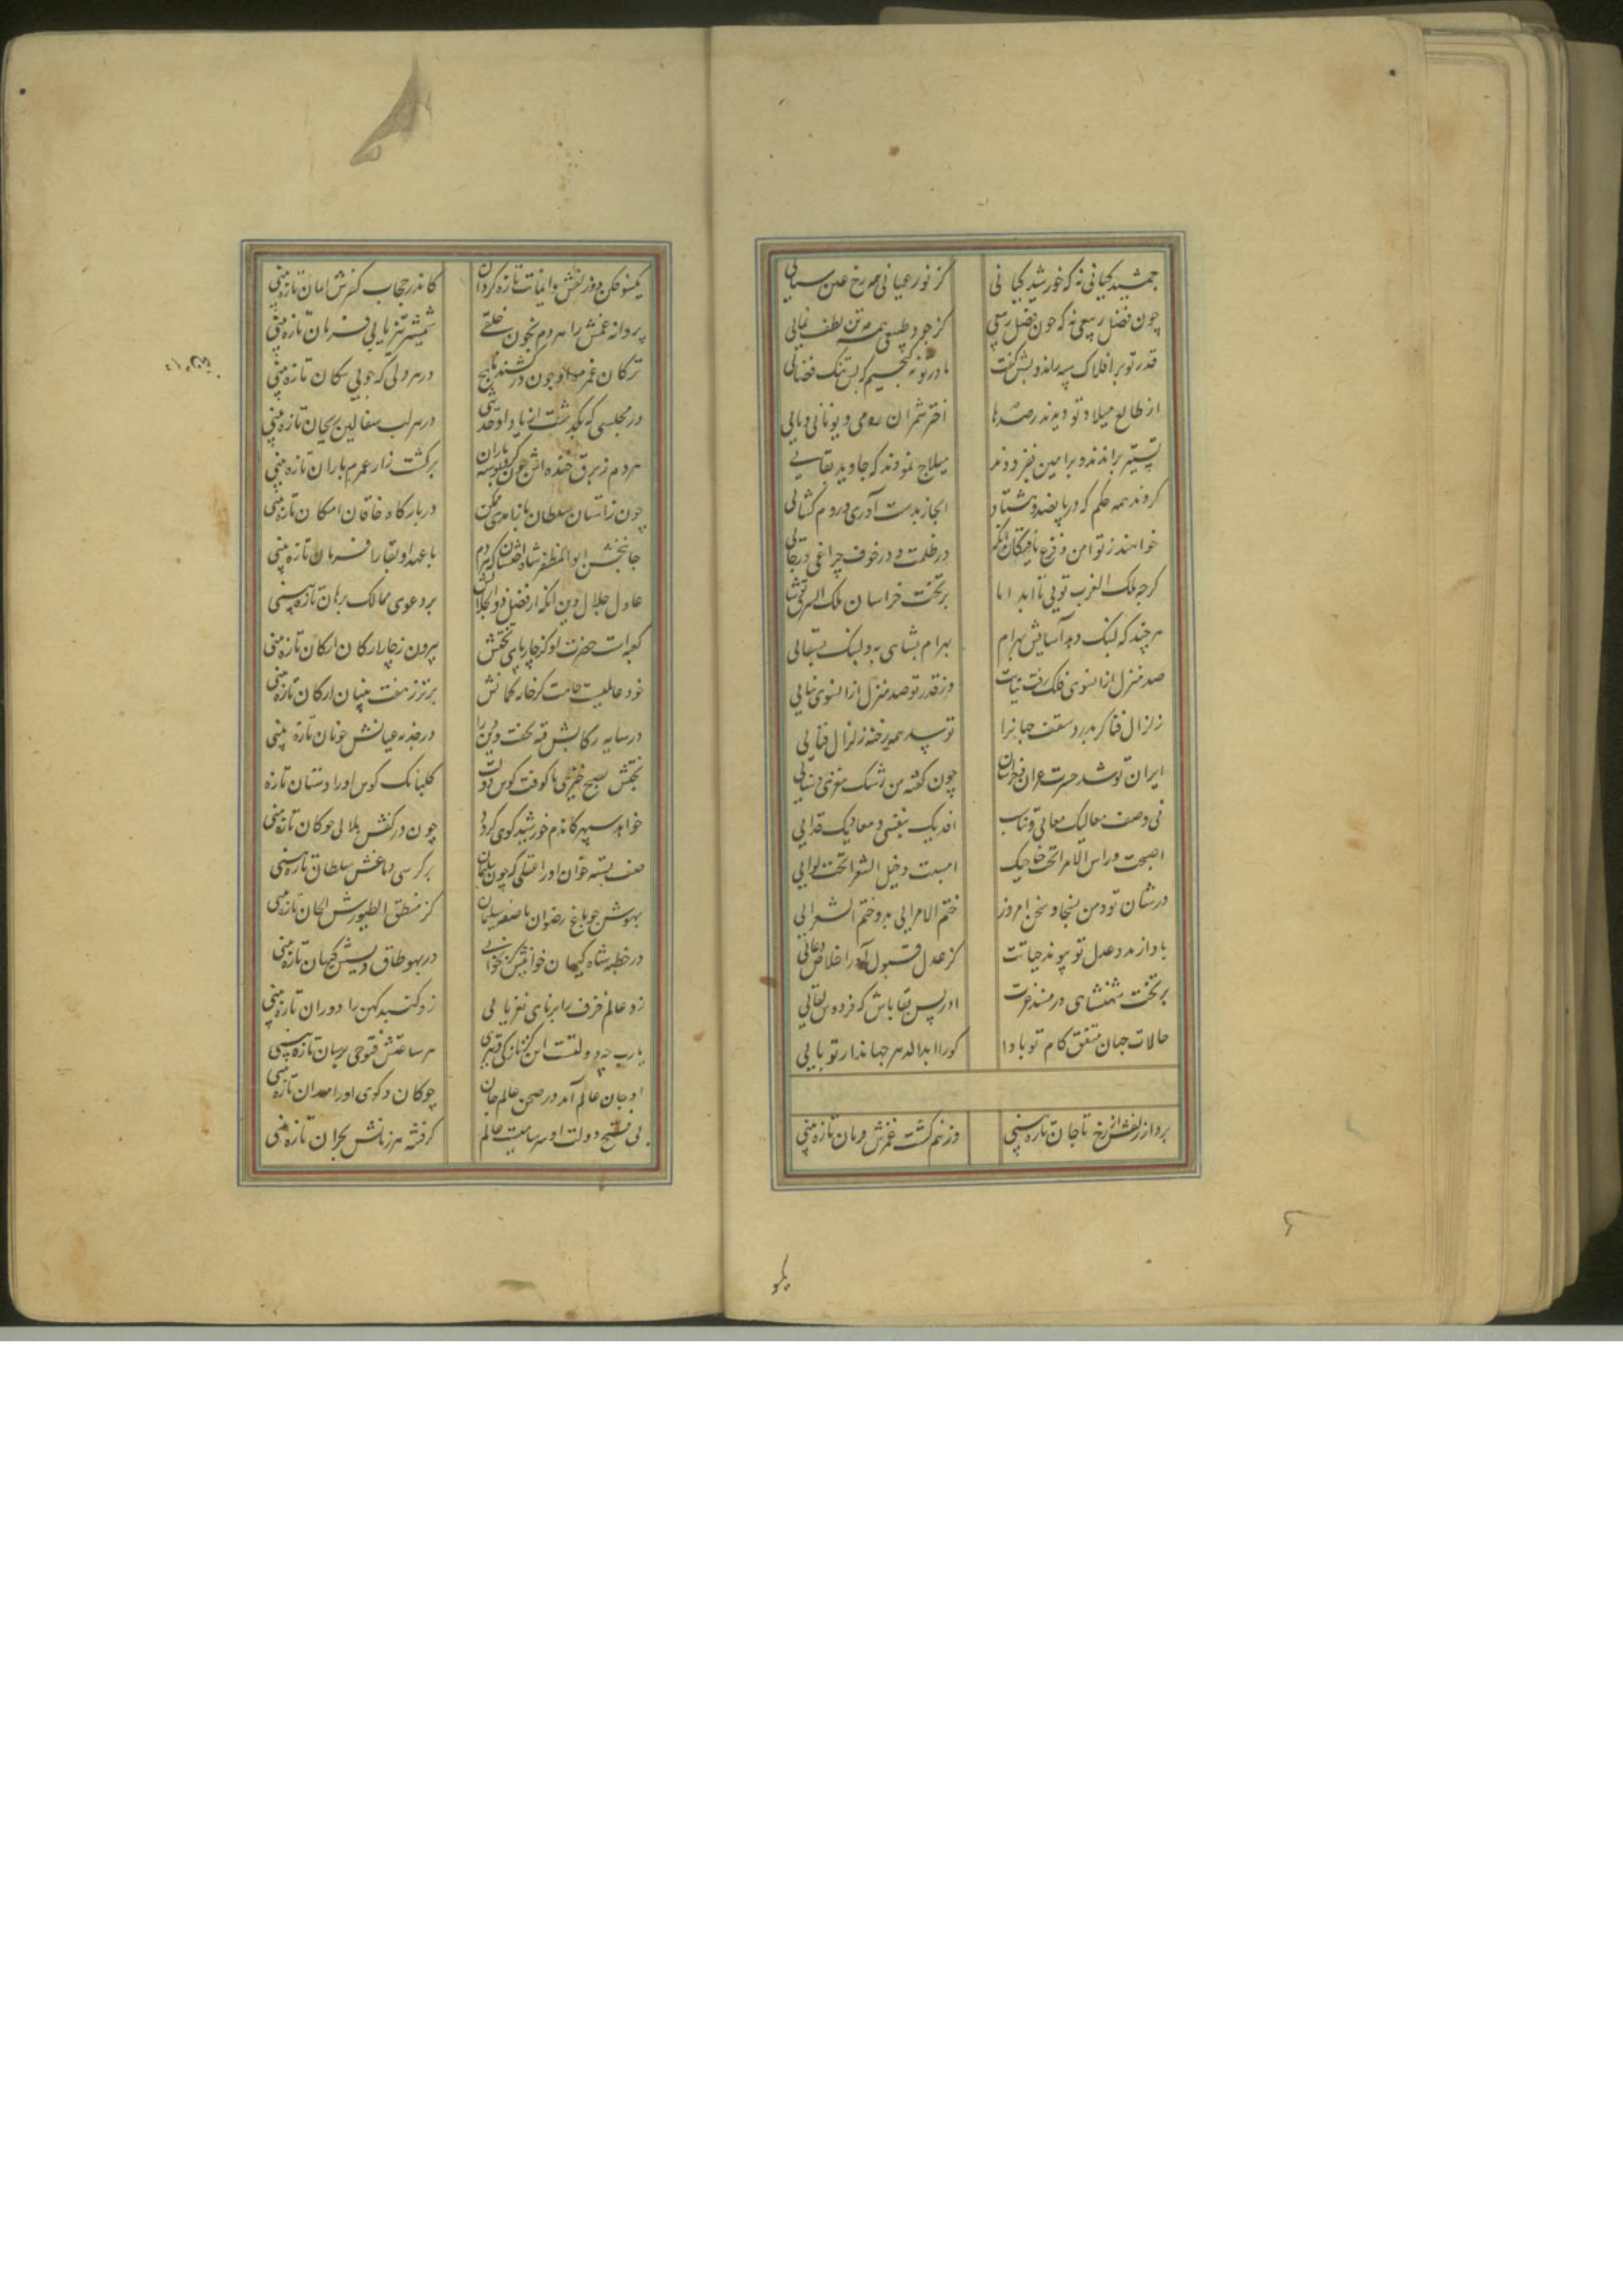 جمشید کیانی نه که خورشید کیانی
کز نور عیانی همه رخ عین سنایی
چون فضل ربیعی نه که چون فضل ربیعی
کز جود طبیعی همه تن لطف نمایی
قدر تو بر افلاک سپه راند و بسش گفت
ما در تو نگنجیم که بس تنگ فضایی
از طالع میلاد تو دیدند رصدها
اختر شمران رومی و یونانی و مایی
تسییر براندند و براهین بفزودند
هیلاج نمودند که جاوید بقایی
کردند همه حکم که در پانصد و هشتاد
ابخاز بدست آری و روم گشایی
خواهند ز تو امن و فزع
در ظلمت و در خوف چراغی و رجایی
گرچه ملک الغرب تویی تا ابد اما
بر تخت خراسان ملک الشرق
هر چند که لبنک دهد آسایش بهرام
بهرام بشاهی به و لبنک بسقایی
صد منزل از انسوی فلک رفت ثنایت
وز قدر تو صد منزل از انسوی ثنایی
زلزال فنا گر بدرد سقف جهانرا
تو سد همه رخنه زلزال فنایی
ایران تو شد حسرت غزنین و خراسان
چون گفته من رشک معزی و سنایی
فی وصف معالیک معانی و تناسب
افدیک بنفسی و معادیک فدایی
اصبحت و راس الامرا تحت خاجیک
امسیت و خیل الشعرا تحت لوایی
در شان تو و من بسخا و سخن امروز
ختم الامرایی به و ختم الشعرایی
بادا ز مدد عدل تو پیوند حیاتت
کز عدل قبول آور اخلاص دعایی
بر تخت شهنشاهی در مسند عزت
ادریس بقا باش که فردوس لقایی
حالات جهان متفق کام تو بادا
کورا ابد الدهر جهاندار تو بایی
بردار زلفش از رخ تا جان تازه بینی
وز نیم کشت غمزش درمان تازه بینی
یکسو فکن دو زلفش و ایمانت تازه گردان
کاندر حجاب کفرش ایمان تازه بینی
پروانه غمش را هر دم بخون خلقی
شمشیر تیز یابی فرمان تازه بینی
ترکان غمزه او چون درکشند
در هر دلی که جویی پیکان تازه بینی
در مجلسی که بگذشت از یاد او حدیثی
در هر لب سفالین ریحان تازه بینی
هر دم ز برق خنده اش چون کرد بوسه باران
بر کشت زار عمرم باران تازه بینی
چون زآستان سلطان باز آمدی
در بارگاه خاقان امکان تازه بینی
جانبخش ابوالمظفر شاه اخستان که هر دم
با عهد او بقا را فرمان تازه بینی
عادل جلال دین آنکه از فضل ذوالجلالش
بر دعوی ممالک برهان تازه بینی
کعبه است حضرت او کز چار پای تختش
بیرون ز چار ارکان ارکان تازه بینی
برتر ز هفت بنیان ارکان تازه بینی
در سایه رکابش فتنه بخفت و دین را
در جذبه عنانش جولان تازه بینی
بختش بصبح خیزی تا کوفت کوس دولت
گلبانگ کوس او را دستان تازه
خواهد سپهر کاندم خورشید گوی گردد
چون در کفش هلالی چوگان تازه بینی
صف بسته خوان او را عقلی که چون سلیمان
بر کرسی دماغش سلطان تازه بینی
بهوش چو باغ رضوان با صفه سلیمان
کز منطق الطیورش الحان تازه بینی
در خطبه شاه کیهان خوانیش
در بهو طاق کیهان تازه بینی
زو عالم خرف را برنای نغز یابی
زو گنبد کهن را دوران تازه بینی
یارب چه دولتست این کز تازگی
هر ساعتش فتوحی برسان تازه بینی
او جان عالم آمد در صحن عالم جان
چوگان و گوی او را میدان تازه بینی
بی فتح دولت او سرسامیست عالم
گرفته هر زمانش بحران تازه بینی